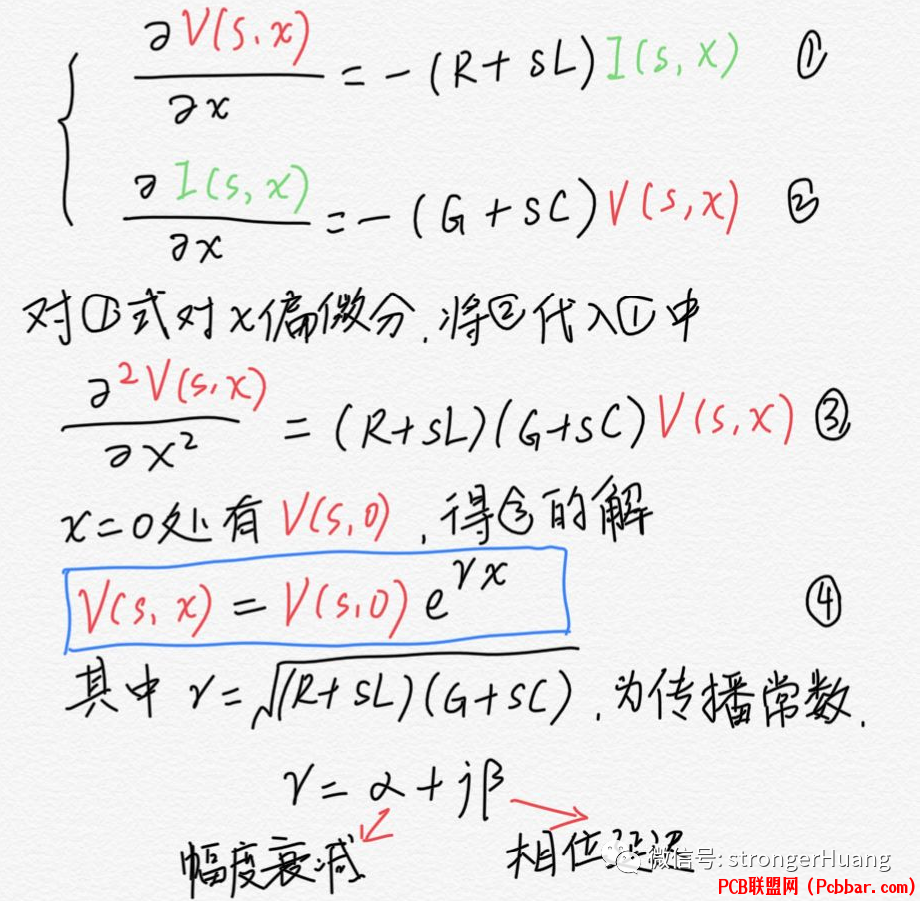 ∂V(s,x)/∂x = -(R+sL)I(s,x) ①
∂I(s,x)/∂x = -(G+sC)V(s,x) ②
对①式对x偏微分,将②代入①中
∂²V(s,x)/∂x² = (R+sL)(G+sC)V(s,x) ③
x=0处有V(s,0),得③的解
V(s,x) = V(s,0)e^{γx} ④
其中γ=√(R+sL)(G+sC),为传播常数.
γ=α+jβ
幅度衰减 相位
微信号: strongerHuang
PCB联盟网(Pcbbar.com)